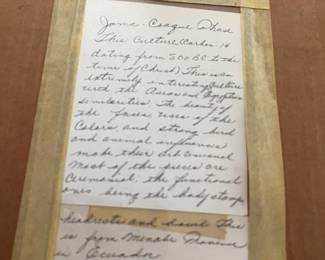 Jama-Coaque Phase
This Culture Carbon 14
dating from 500 BC to the
time of Christ) This was
extremely interesting culture
with the Asian and Egyptian
similarities. The beauty of
the faces, uses of the
Colors and strong bird
and animal influences
make their art unusual
Most of the pieces are
Ceremonial, the functional
ones being the body stamps
headrests and bowl This
is from Province
in Ecuador